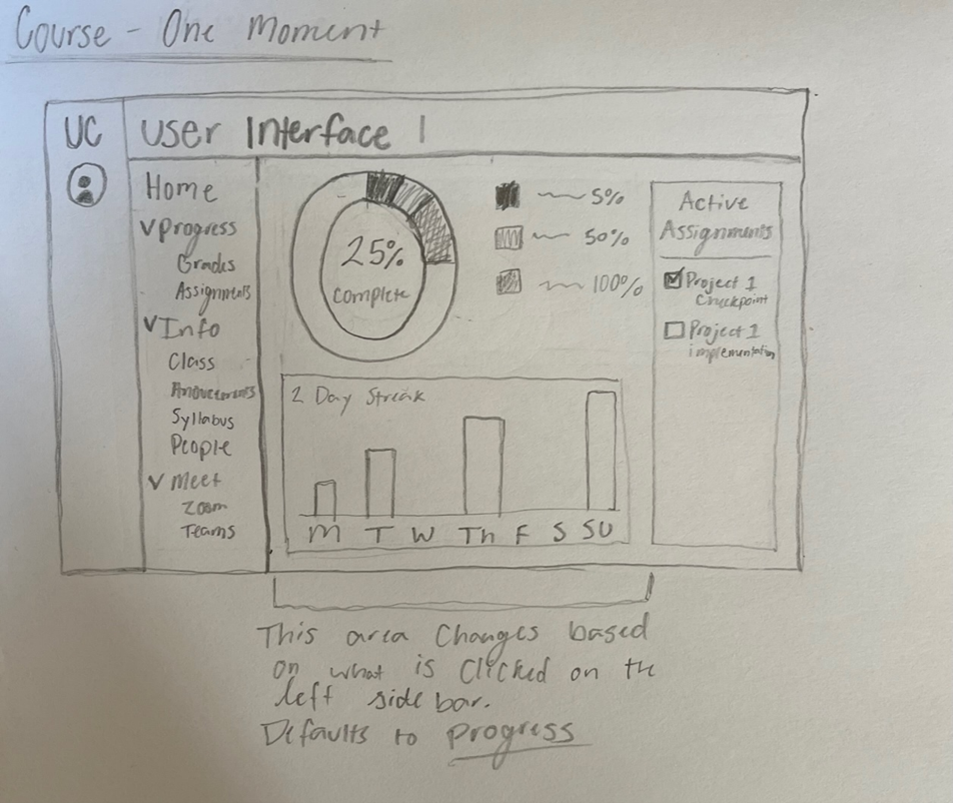 Course - One Moment
UC
User Interface 1
Home
Progress
Grades
Assignments
Info
Class
Syllabus
People
Meet
Zoom
Teams
25%
complete
5%
50%
100%
Active
Assignments
Project 1
Checkpoint
Project 1
implementation
2 Day Streak
M T W Th F S SU
This area Changes based
on what is Clicked on the
left side bar.
Defaults to Progress